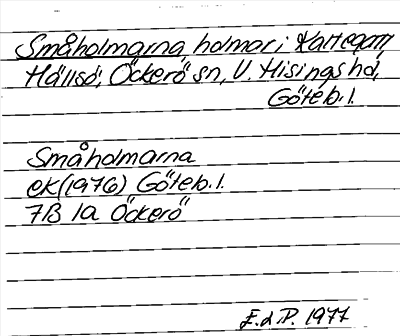 Småholmarna, holmar i Kattegatt,
Hällsö, Öckerö sn, V. Hisings hd,
Göteb.l.
Småholmarna
ek(1976) Göteb.l.
7B 1a Öckerö
E.d.P. 1977